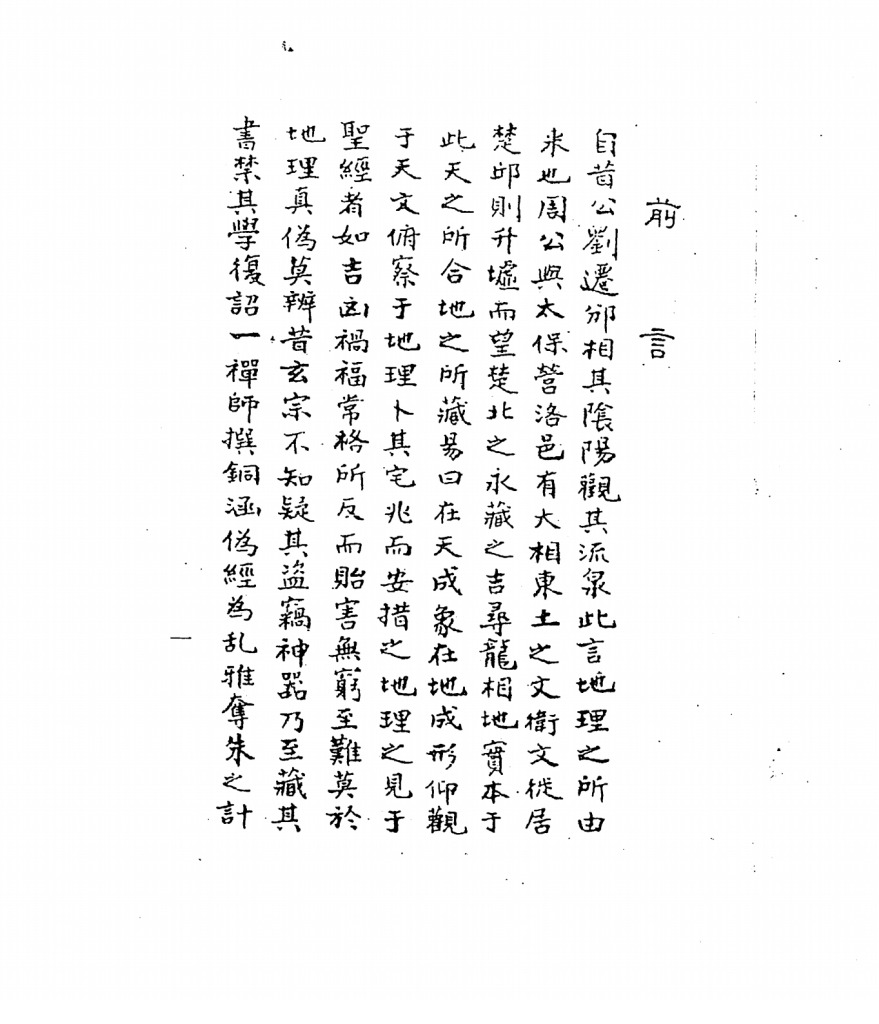 前言
自昔公劉遷邠相其陰陽觀其流泉此言地理之所由
来也周公與太保營洛邑有大相東土之文衛文徙居
楚邱則升墟而望楚北之永藏之吉尋龍相地實本于
此天之所合地之所藏易曰在天成象在地成形仰觀
于天文俯察于地理卜其宅兆而安措之地理之見于
聖經者如吉凶禍福常格所反而貽害無窮至難莫於
地理真偽莫辨昔玄宗不知疑其盜竊神器乃至藏其
書禁其學復詔一禪師撰銅涵偽經為乱雅奪朱之計
一